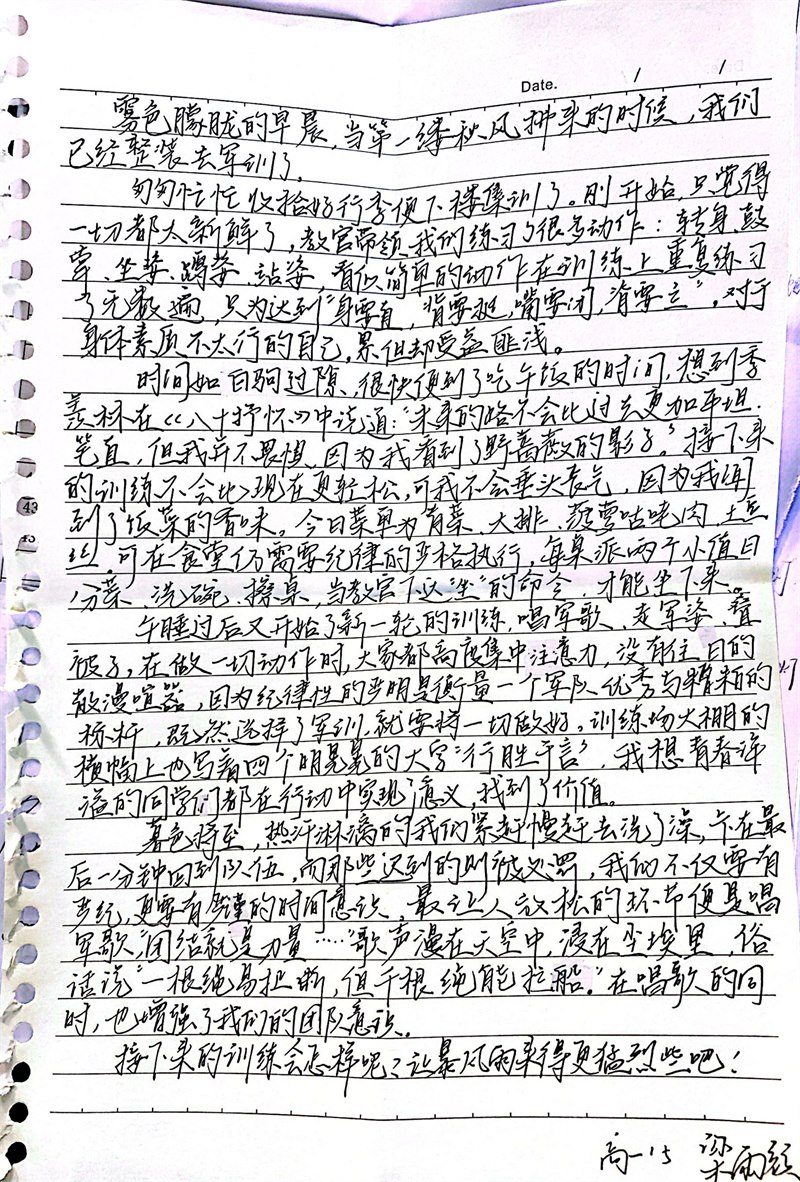 Date. / /
雾色朦胧的早晨,当第一缕秋风拂来的时候,我们
已经整装去军训了。
匆匆忙忙收拾好行李便下楼集训了。刚开始,只觉得
一切都太新鲜了,教官带领我们练习了很多动作:转身、鼓
掌、坐姿、蹲姿、站姿,看似简单的动作在训练上重复练习
了无数遍,只为达到“身要直,背要挺,嘴要闭,肩要立”。对于
身体素质不太行的自己,累但却受益匪浅。
时间如白驹过隙、很快便到了吃午饭的时间,想到季
羡林在《八十抒怀》中说道:“未来的路不会比过去更加平坦、
笔直,但我并不畏惧,因为我看到了野蔷薇的影子。”接下来
的训练不会比现在更轻松,可我不会垂头丧气,因为我闻
到了饭菜的香味。今日菜单为青菜、大排、菠萝咕咾肉、土豆
丝,可在食堂仍需要纪律的严格执行,每桌派两个小值日
分菜、洗碗、擦桌,当教官下以“坐”的命令,才能坐下来。
午睡过后又开始了新一轮的训练,唱军歌、走军姿、叠
被子,在做一切动作时,大家都高度集中注意力,没有往日的
散漫喧嚣,因为纪律性的严明是衡量一个军队优秀与精粕的
标杆,既然选择了军训,就要将一切做好。训练场大棚的
横幅上也写着四个明晃晃的大字“行胜于言”,我想青春洋
溢的同学们都在行动中实现了意义,找到了价值。
暮色将至,热汗淋漓的我们紧赶慢赶去洗了澡,卡在最
后一分钟回到队伍,而那些迟到的则被处罚,我们不仅要有
严纪,更要有严谨的时间意识,最让人放松的环节便是唱
军歌,“团结就是力量……”歌声漫在天空中,浸在尘埃里,俗
话说“一根绳易扯断,但千根绳能拉船。”在唱歌的同
时,也增强了我们的团队意识。
接下来的训练会怎样呢?让暴风雨来得更猛烈些吧!
高一15 梁雨颢